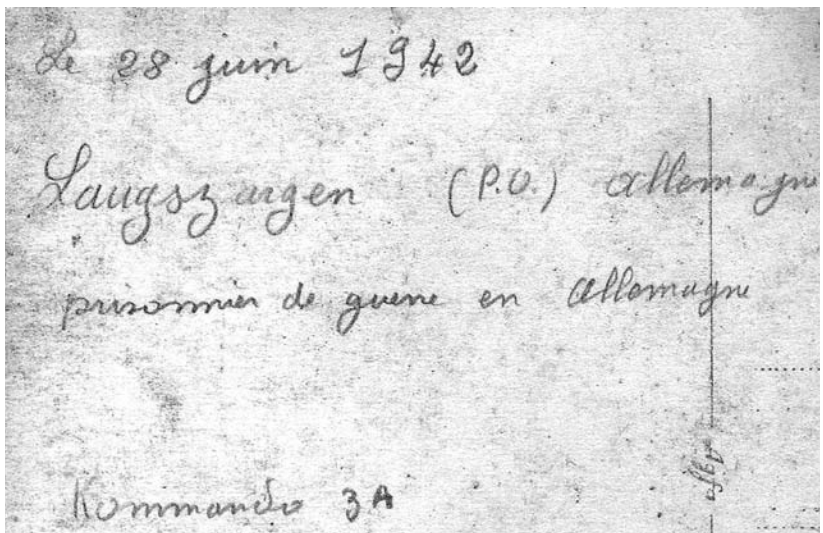 Le 28 juin 1942
Laugszargen (P.O.) allemagne
prisonnier de guerre en allemagne
Kommando 3A